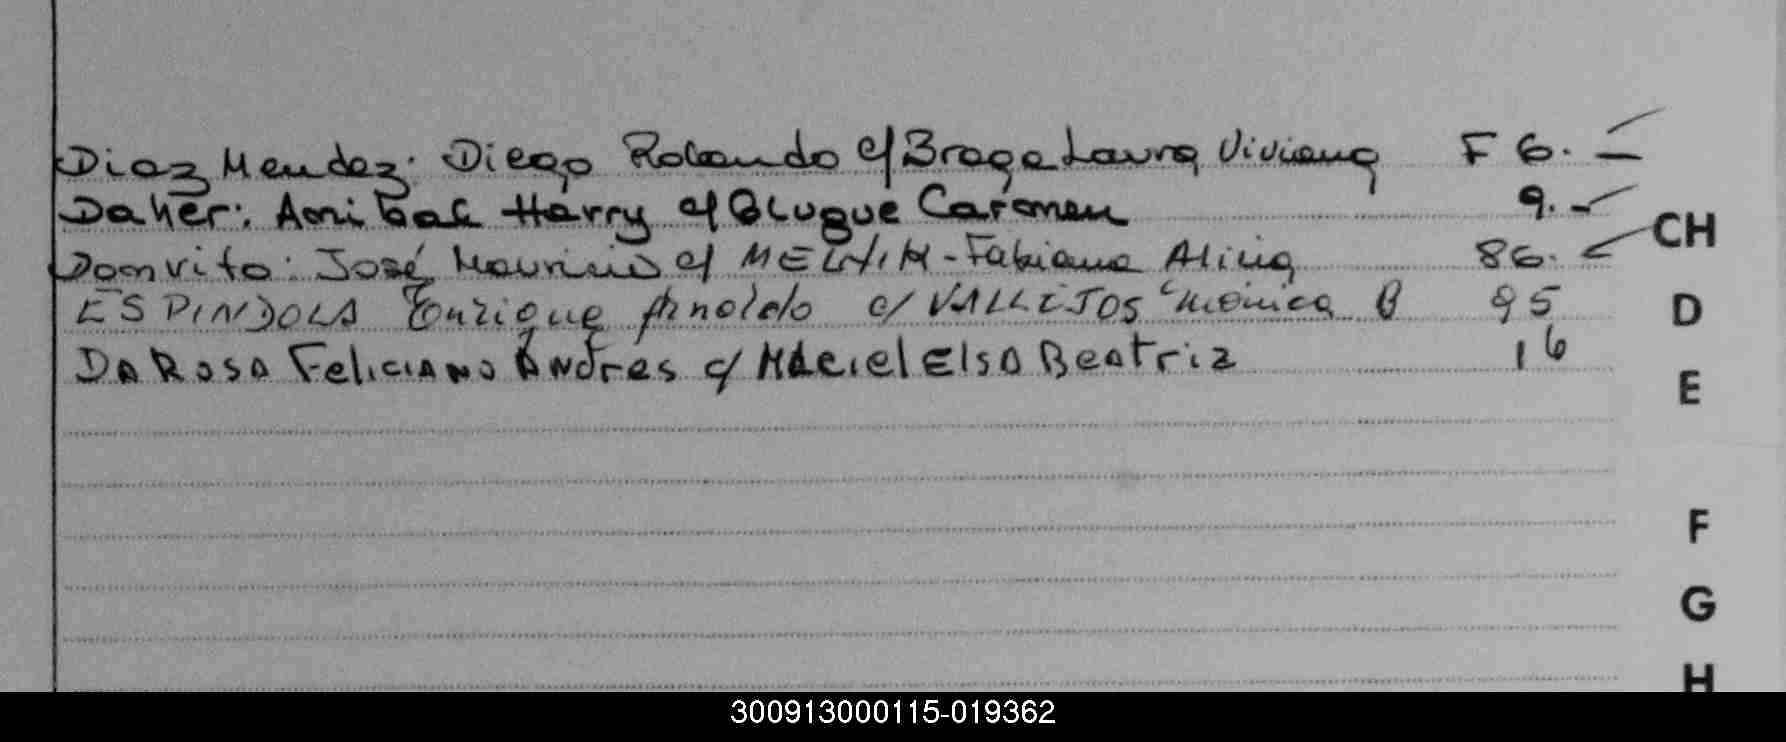 Diaz Mendez: Diego Rolando c/ Braga Laura Viviana F 6. –
Daher: Anibal Harry c/ Bluque Carmen 9. –
Domvito: José Mauricio c/ Fabiana Alicia 86. –
CH
ESPINDOLA Enrique Arnoldo c/ VALLEJOS Mónica B 95
D
DA ROSA FELICIANO ANDRES c/ MACIEL ELSA BEATRIZ 16
E
F
G
H
300913000115-019362